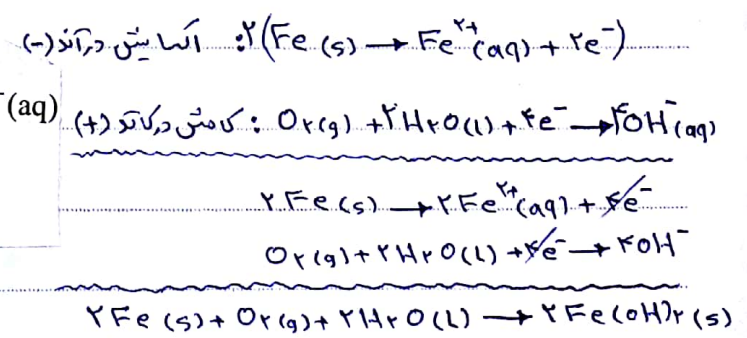 اکسایش در آند (-): ۲(Fe (s) → Fe²⁺(aq) + ۲e⁻)
⁻(aq)
کاهش در کاتد (+): O۲(g) + ۲H۲O(l) + ۴e⁻ → ۴OH⁻(aq)
۲Fe (s) → ۲Fe²⁺(aq) + ۴e⁻
O۲(g) + ۲H۲O(l) + ۴e⁻ → ۴OH⁻
۲Fe (s) + O۲(g) + ۲H۲O(l) → ۲Fe(OH)۲(s)